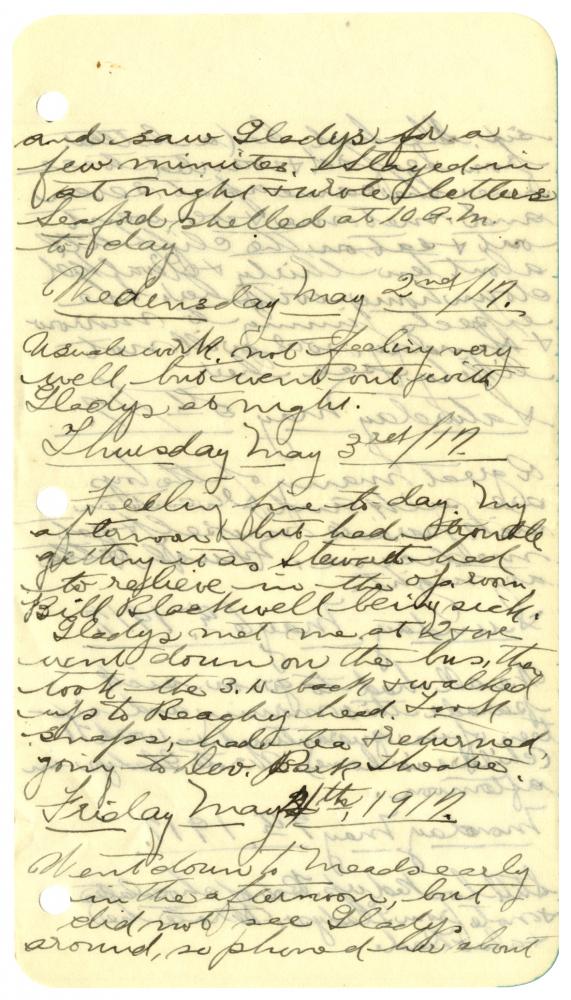 and saw Gladys for a
few minutes. Stayed in
at night & wrote letters
Seaford shelled at 10 P.M.
to-day
Wedensday May 2nd/17.
Usual work. not feeling very
well, but went out with
Gladys at night.
Thursday May 3rd/17.
Feeling fine to day. My
afternoon but had trouble
getting it as Stewart had
to relieve in the op. room
Bill Blackwell being sick.
Gladys met me at 2 & we
went down on the bus, then
took the 3. back & walked
up to Beachy head. Took
snaps, had tea & returned,
going to Dev. Park Theatre.
Friday May 4th, 1917.
Went down to Meads early
in the afternoon, but
did not see Gladys
around, so phoned her about